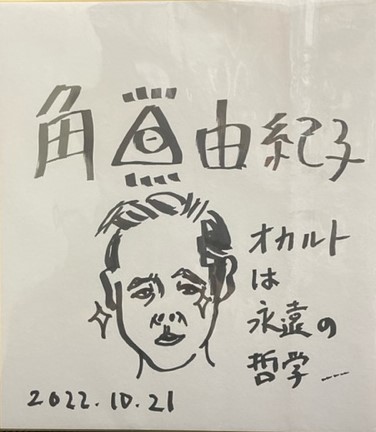 角由紀子
オカルト
は
永遠の
哲学---
2022.10.21